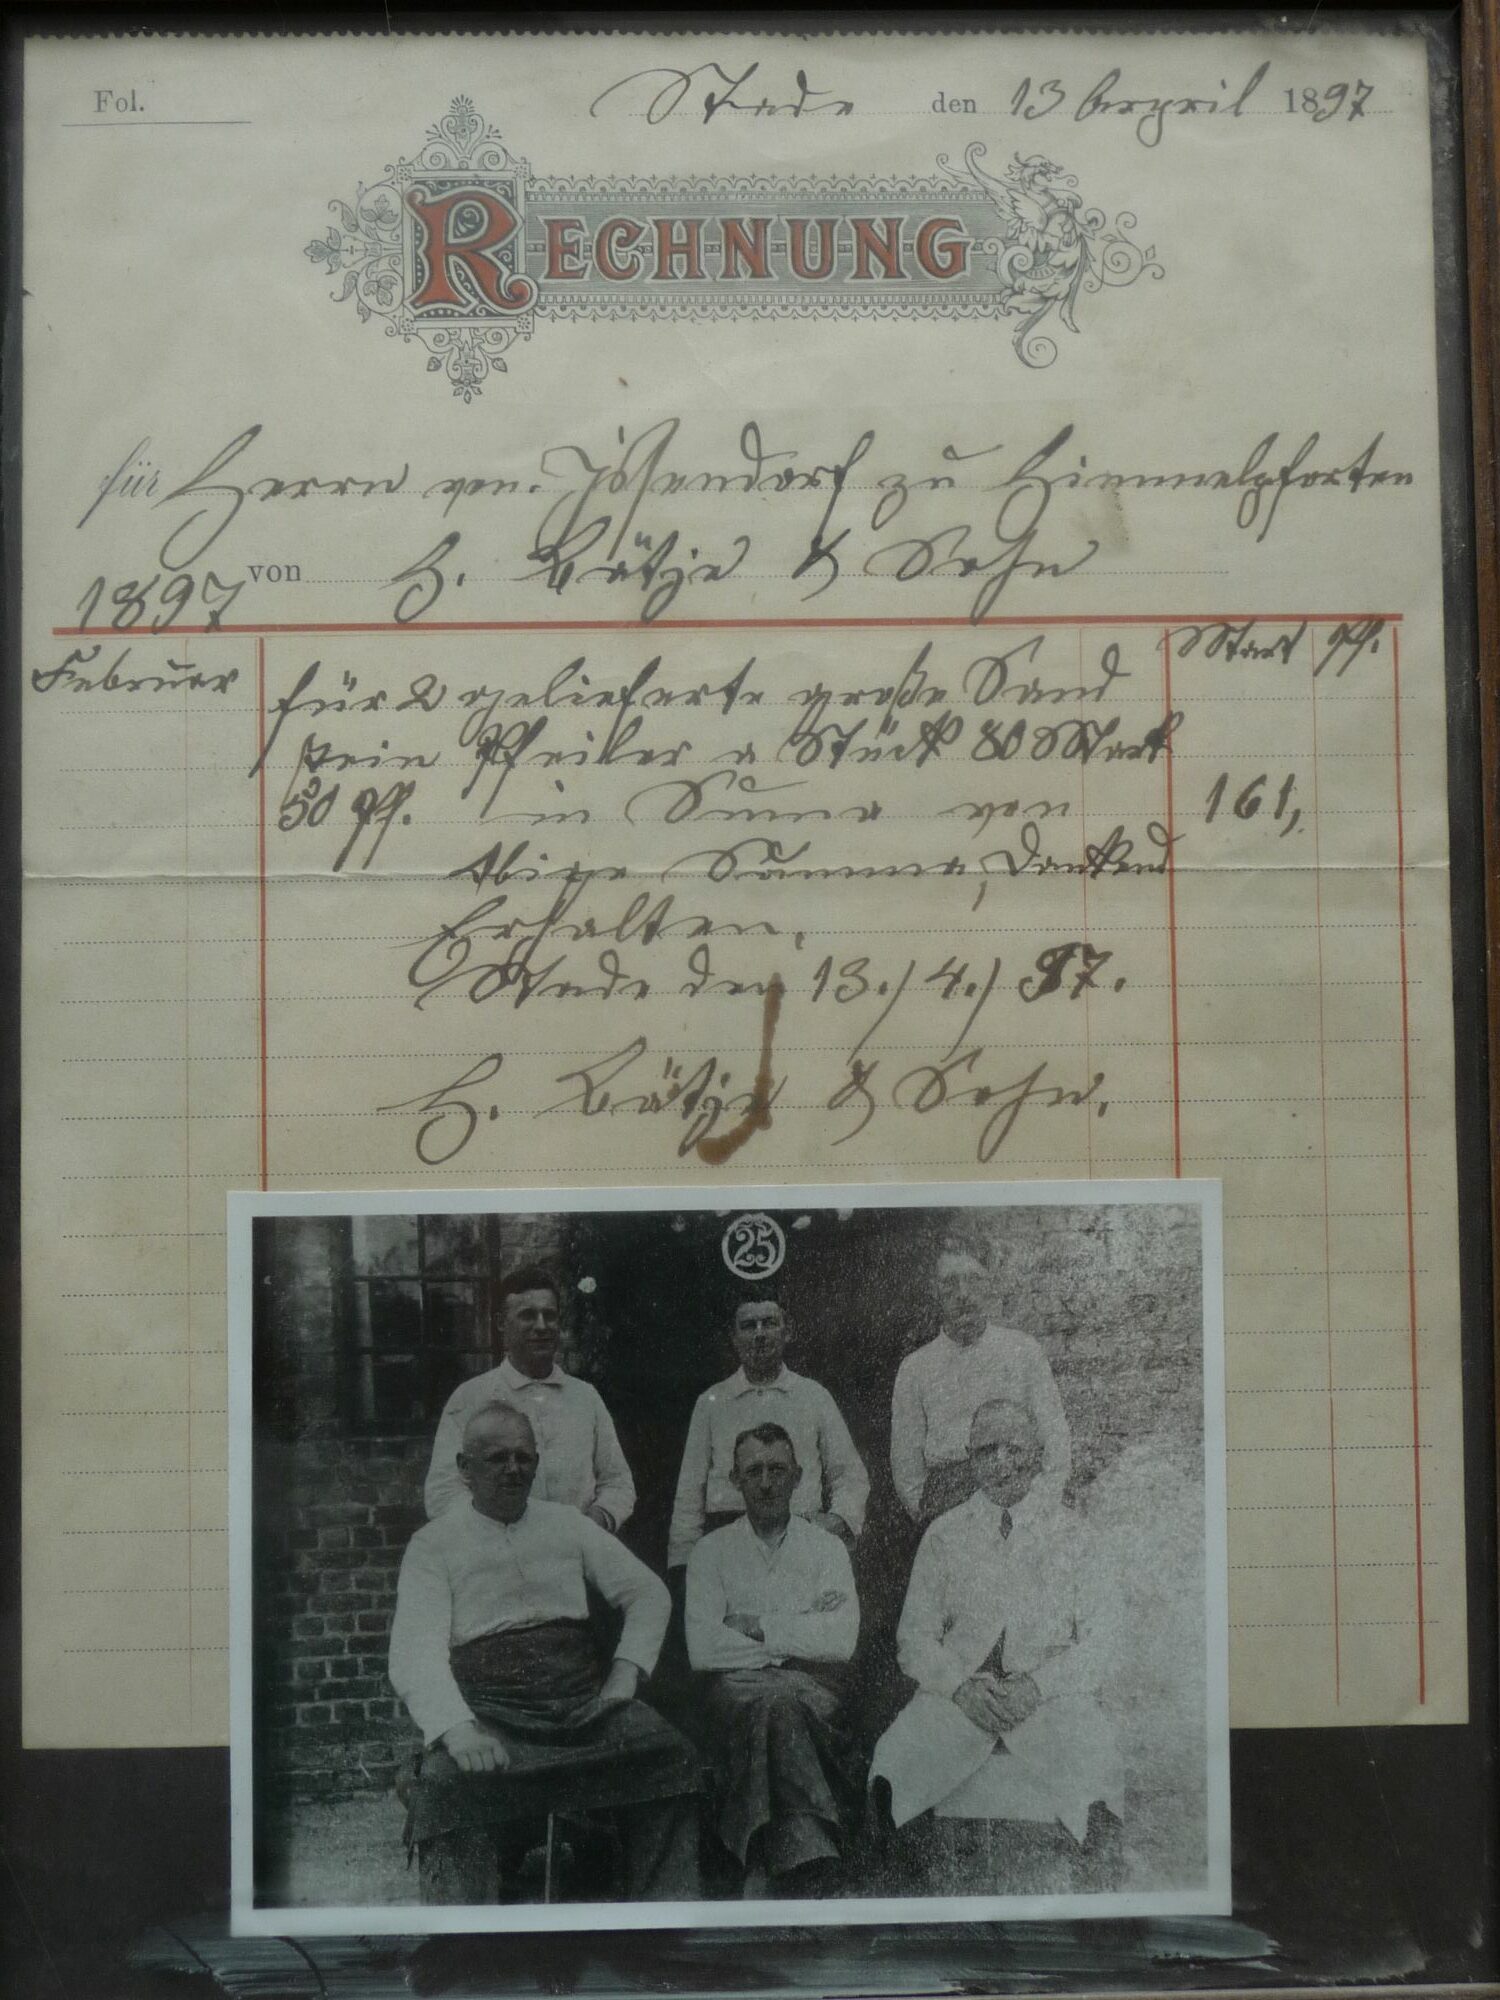 Fol.
Stade den 13 April 1897
RECHNUNG
für Herrn von Issendorf zu Himmelpforten
1897 von H. Bätje & Sohn
Mark Pf.
Februar für 2 gelieferte große Sand
stein Pfeiler a Stück 80 Mark
50 Pf. in Suma von 161,
Obige Summe, Dankend
Erhalten.
Stade den 13./4./97.
H. Bätje & Sohn.
25